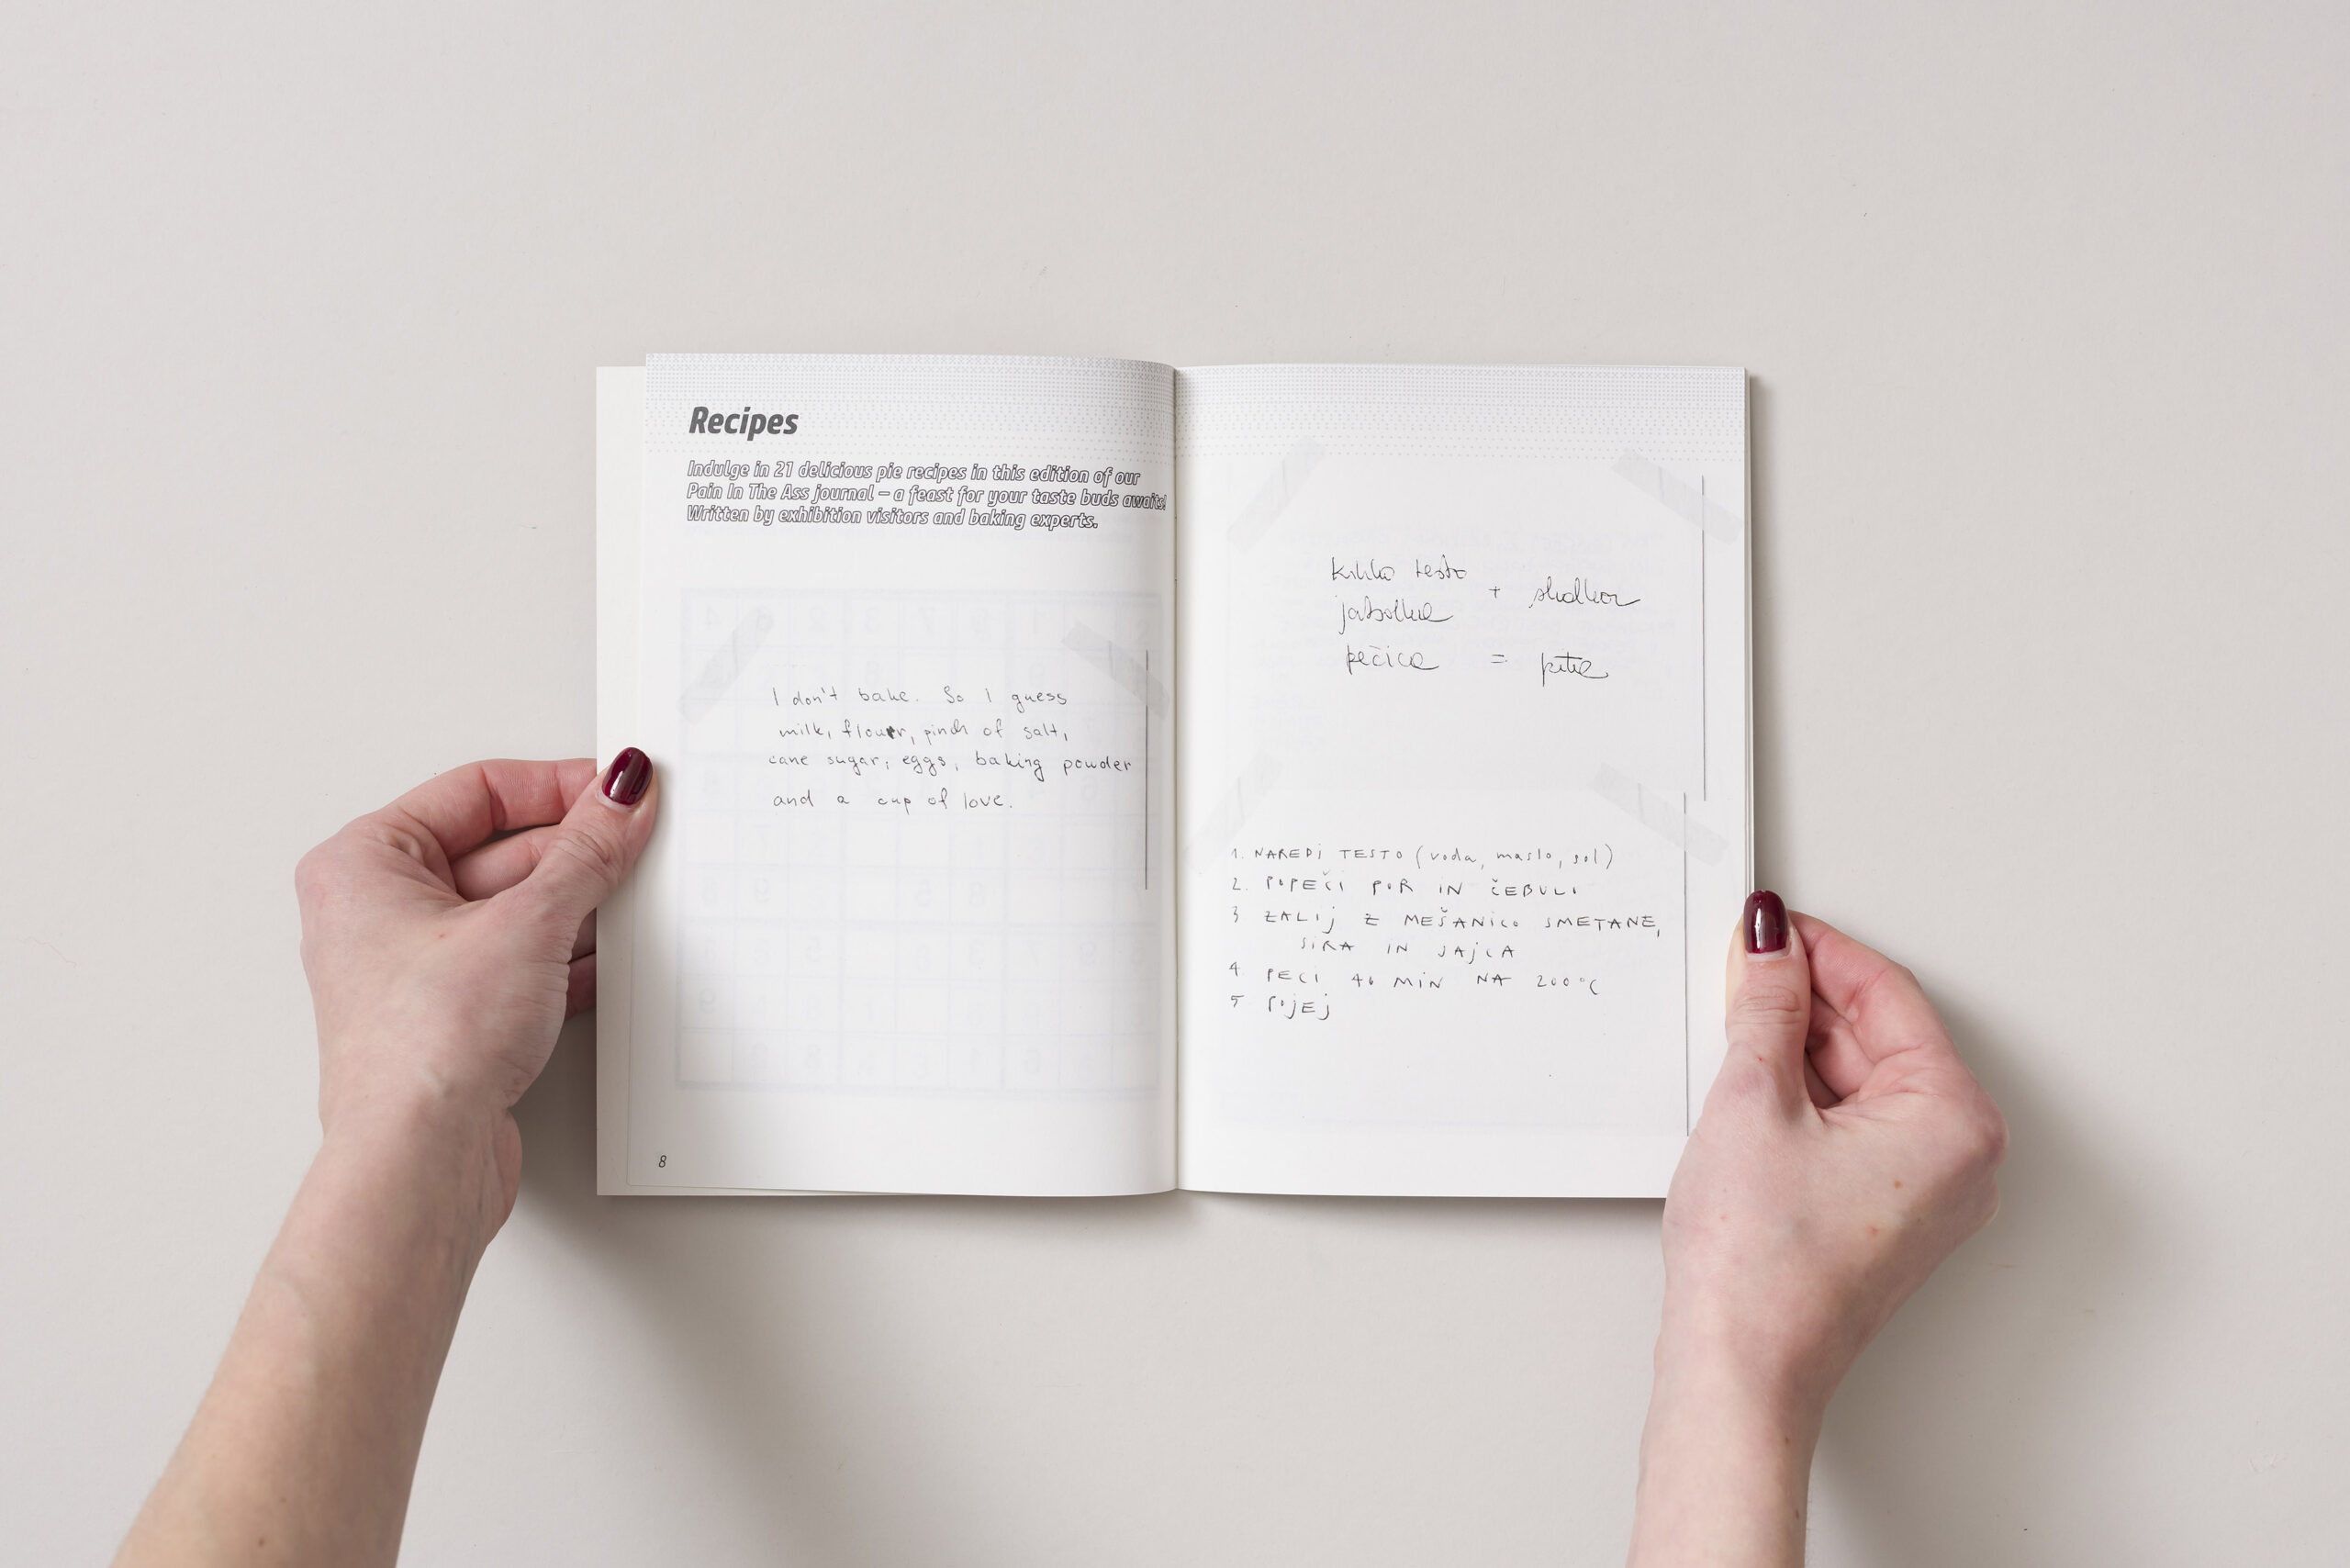 Recipes
Indulge in 21 delicious pie recipes in this edition of our
Pain In The Ass journal – a feast for your taste buds awaits!
Written by exhibition visitors and baking experts.
I don't bake. So I guess
milk, flour, pinch of salt,
cane sugar, eggs, baking powder
and a cup of love.
8
krhko testo
+ sladkor
jabolka
pečica = pita
1. NAREDI TESTO (voda, maslo, sol)
2. POPEČI POR IN ČEBULO
3 ZALIJ Z MEŠANICO SMETANE,
SIRA IN JAJCA
4 PECI 40 MIN NA 200°C
5 POJEJ